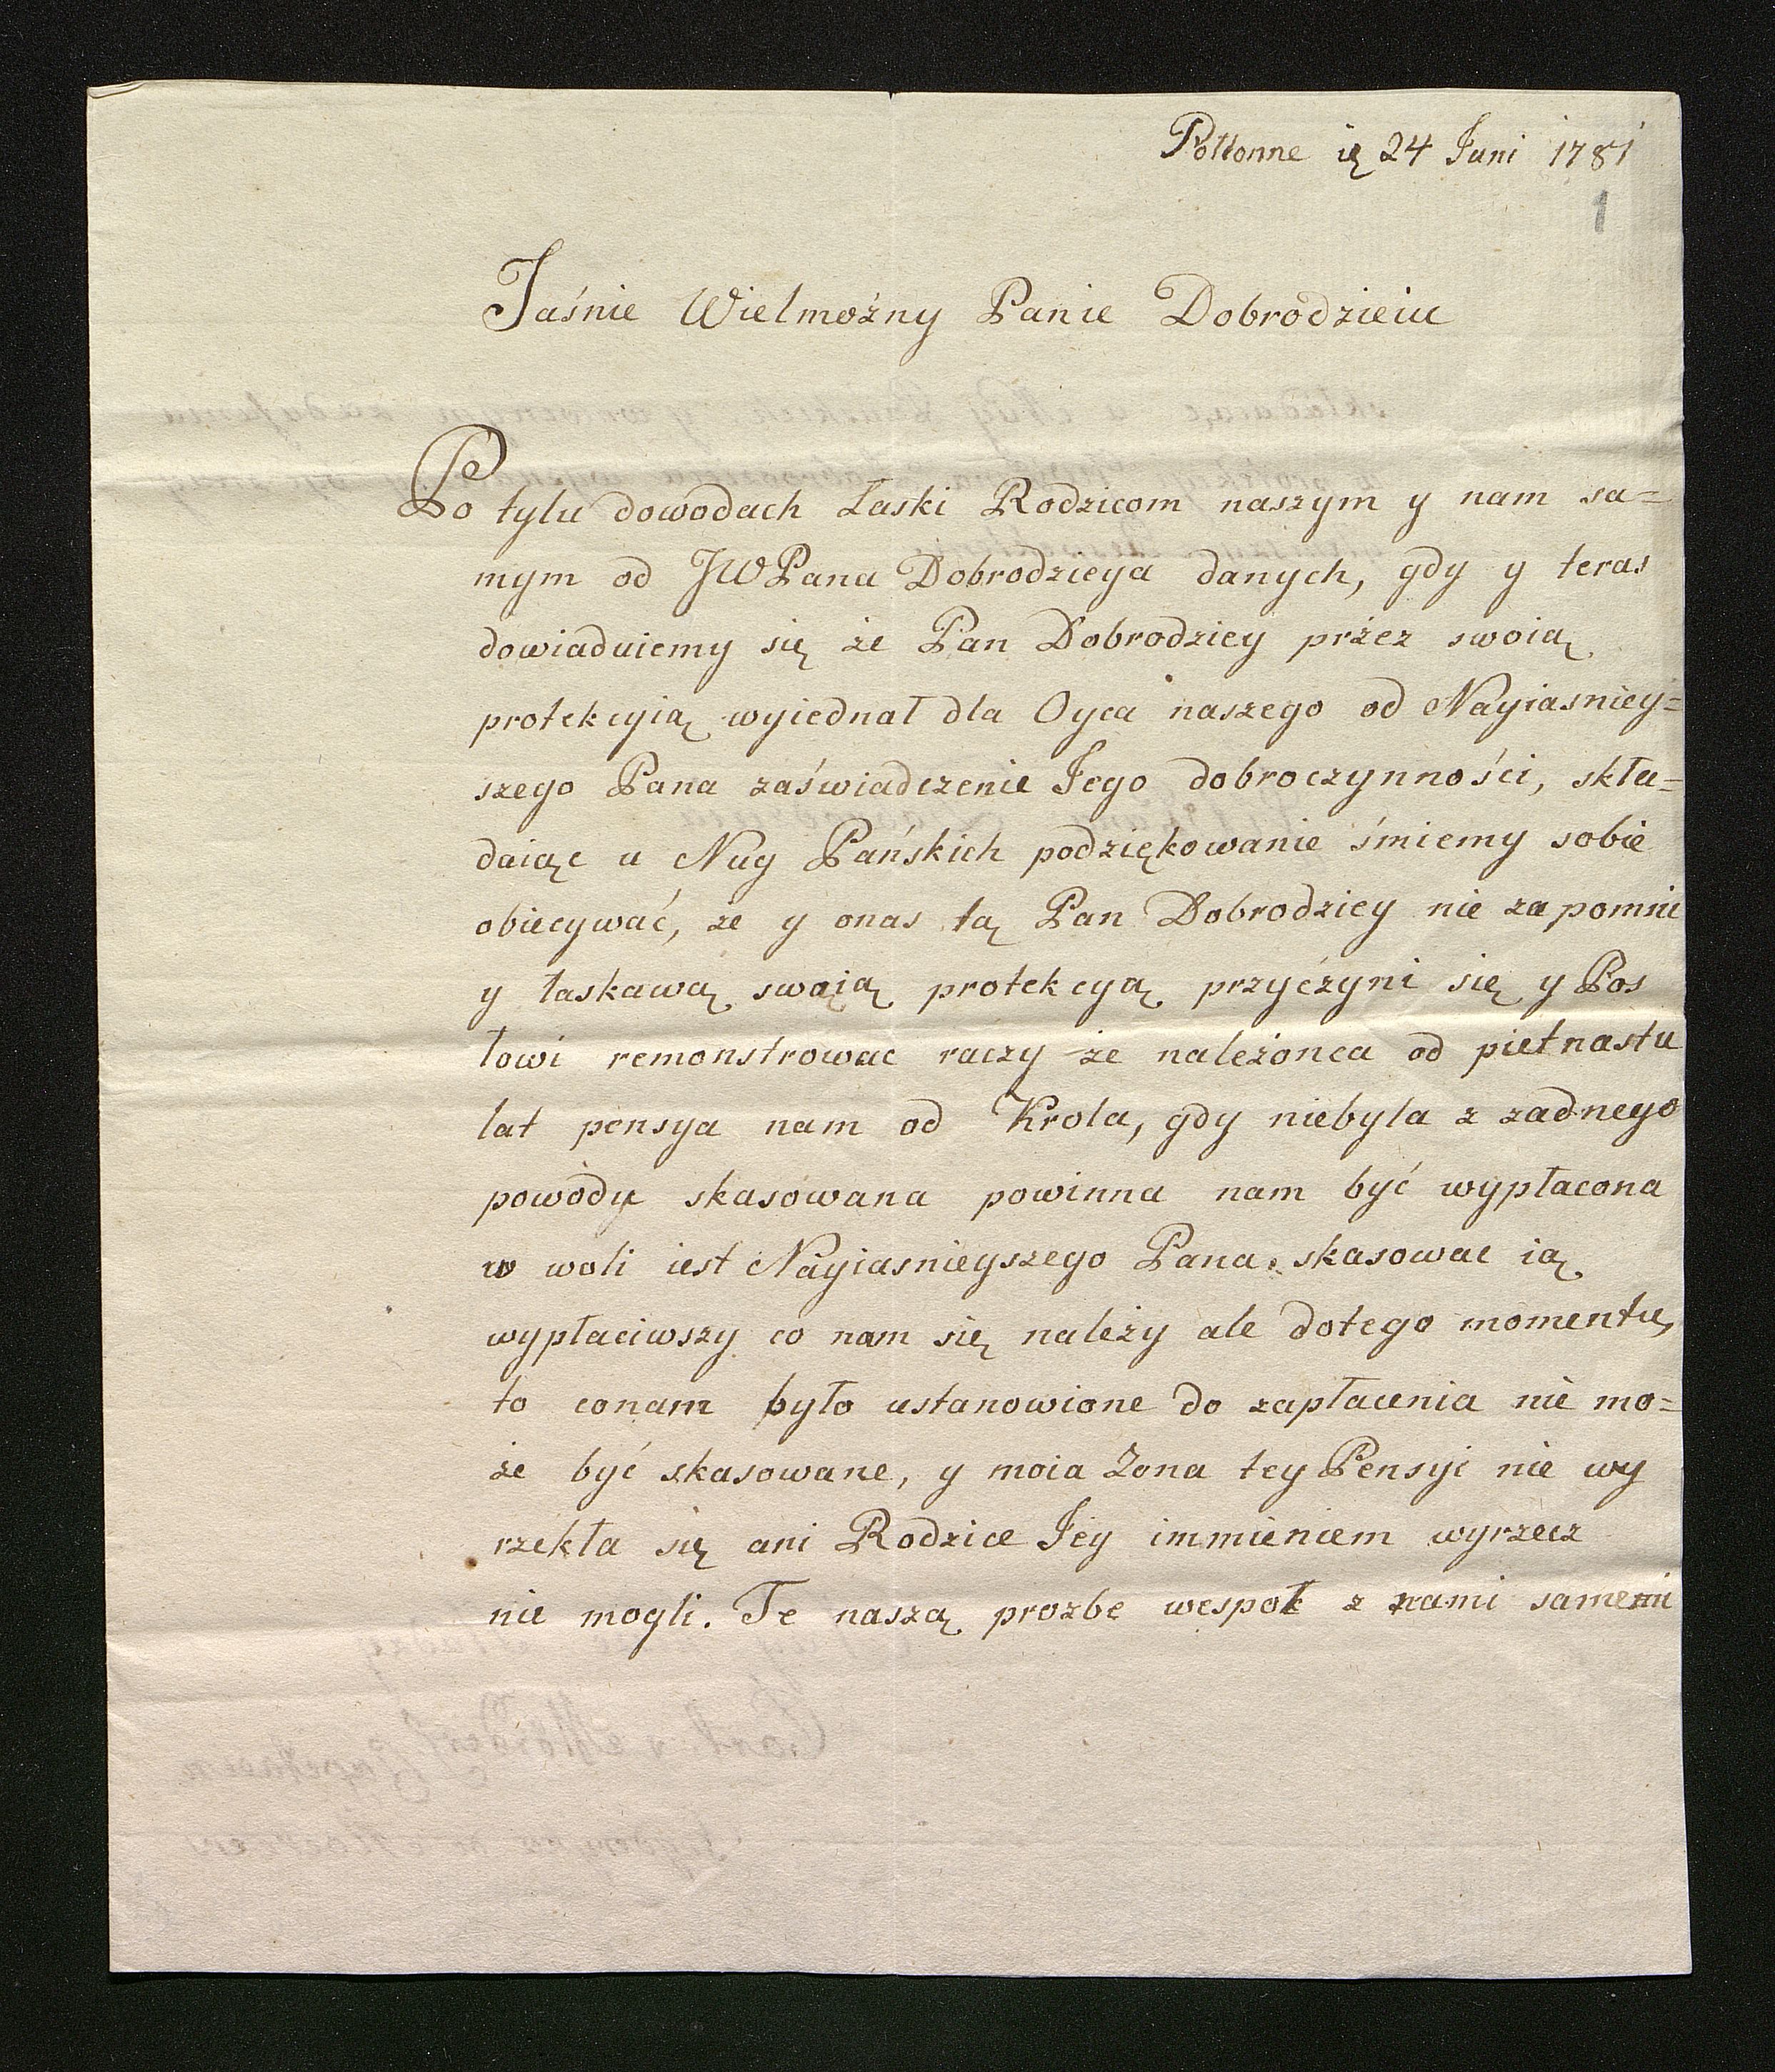 Połłonne 24 Juni 1781
1
Jaśnie Wielmożny Panie Dobrodzieiu
Po tylu dowodach Łaski Rodzicom naszym y nam sa=
mym od JWPana Dobrodzieya danych, gdy y teras
dowiaduiemy się że Pan Dobrodziey przez swoią
protekcyią wyiednał dla Oyca naszego od Nayiasniey=
szego Pana zaświadczenie Jego dobroczynności, skła=
daiąc u Nug Pańskich podziękowanie śmiemy sobie
obiecywać, że y onas tą Pan Dobrodziey nie zapomni
y łaskawą swoią protekcyą przyczyni się y Pos
łowi remonstrowac raczy że należonca od pietnastu
lat pensya nam od Krola, gdy niebyla z zadnego
powodu skasowana powinna nam być wypłacona
w woli iest Nayiasnieyszego Pana skasowac ią
wypłaciwszy co nam się należy ale dotego momentu,
to conam było ustanowione do zapłacenia nie mo=
że być skasowane, y moia Żona tey Pensyi nie wy
rzekła się ani Rodzice Jey immieniem wyrzecz
nie mogli. Te naszą prozbe wespoł z nami samemi